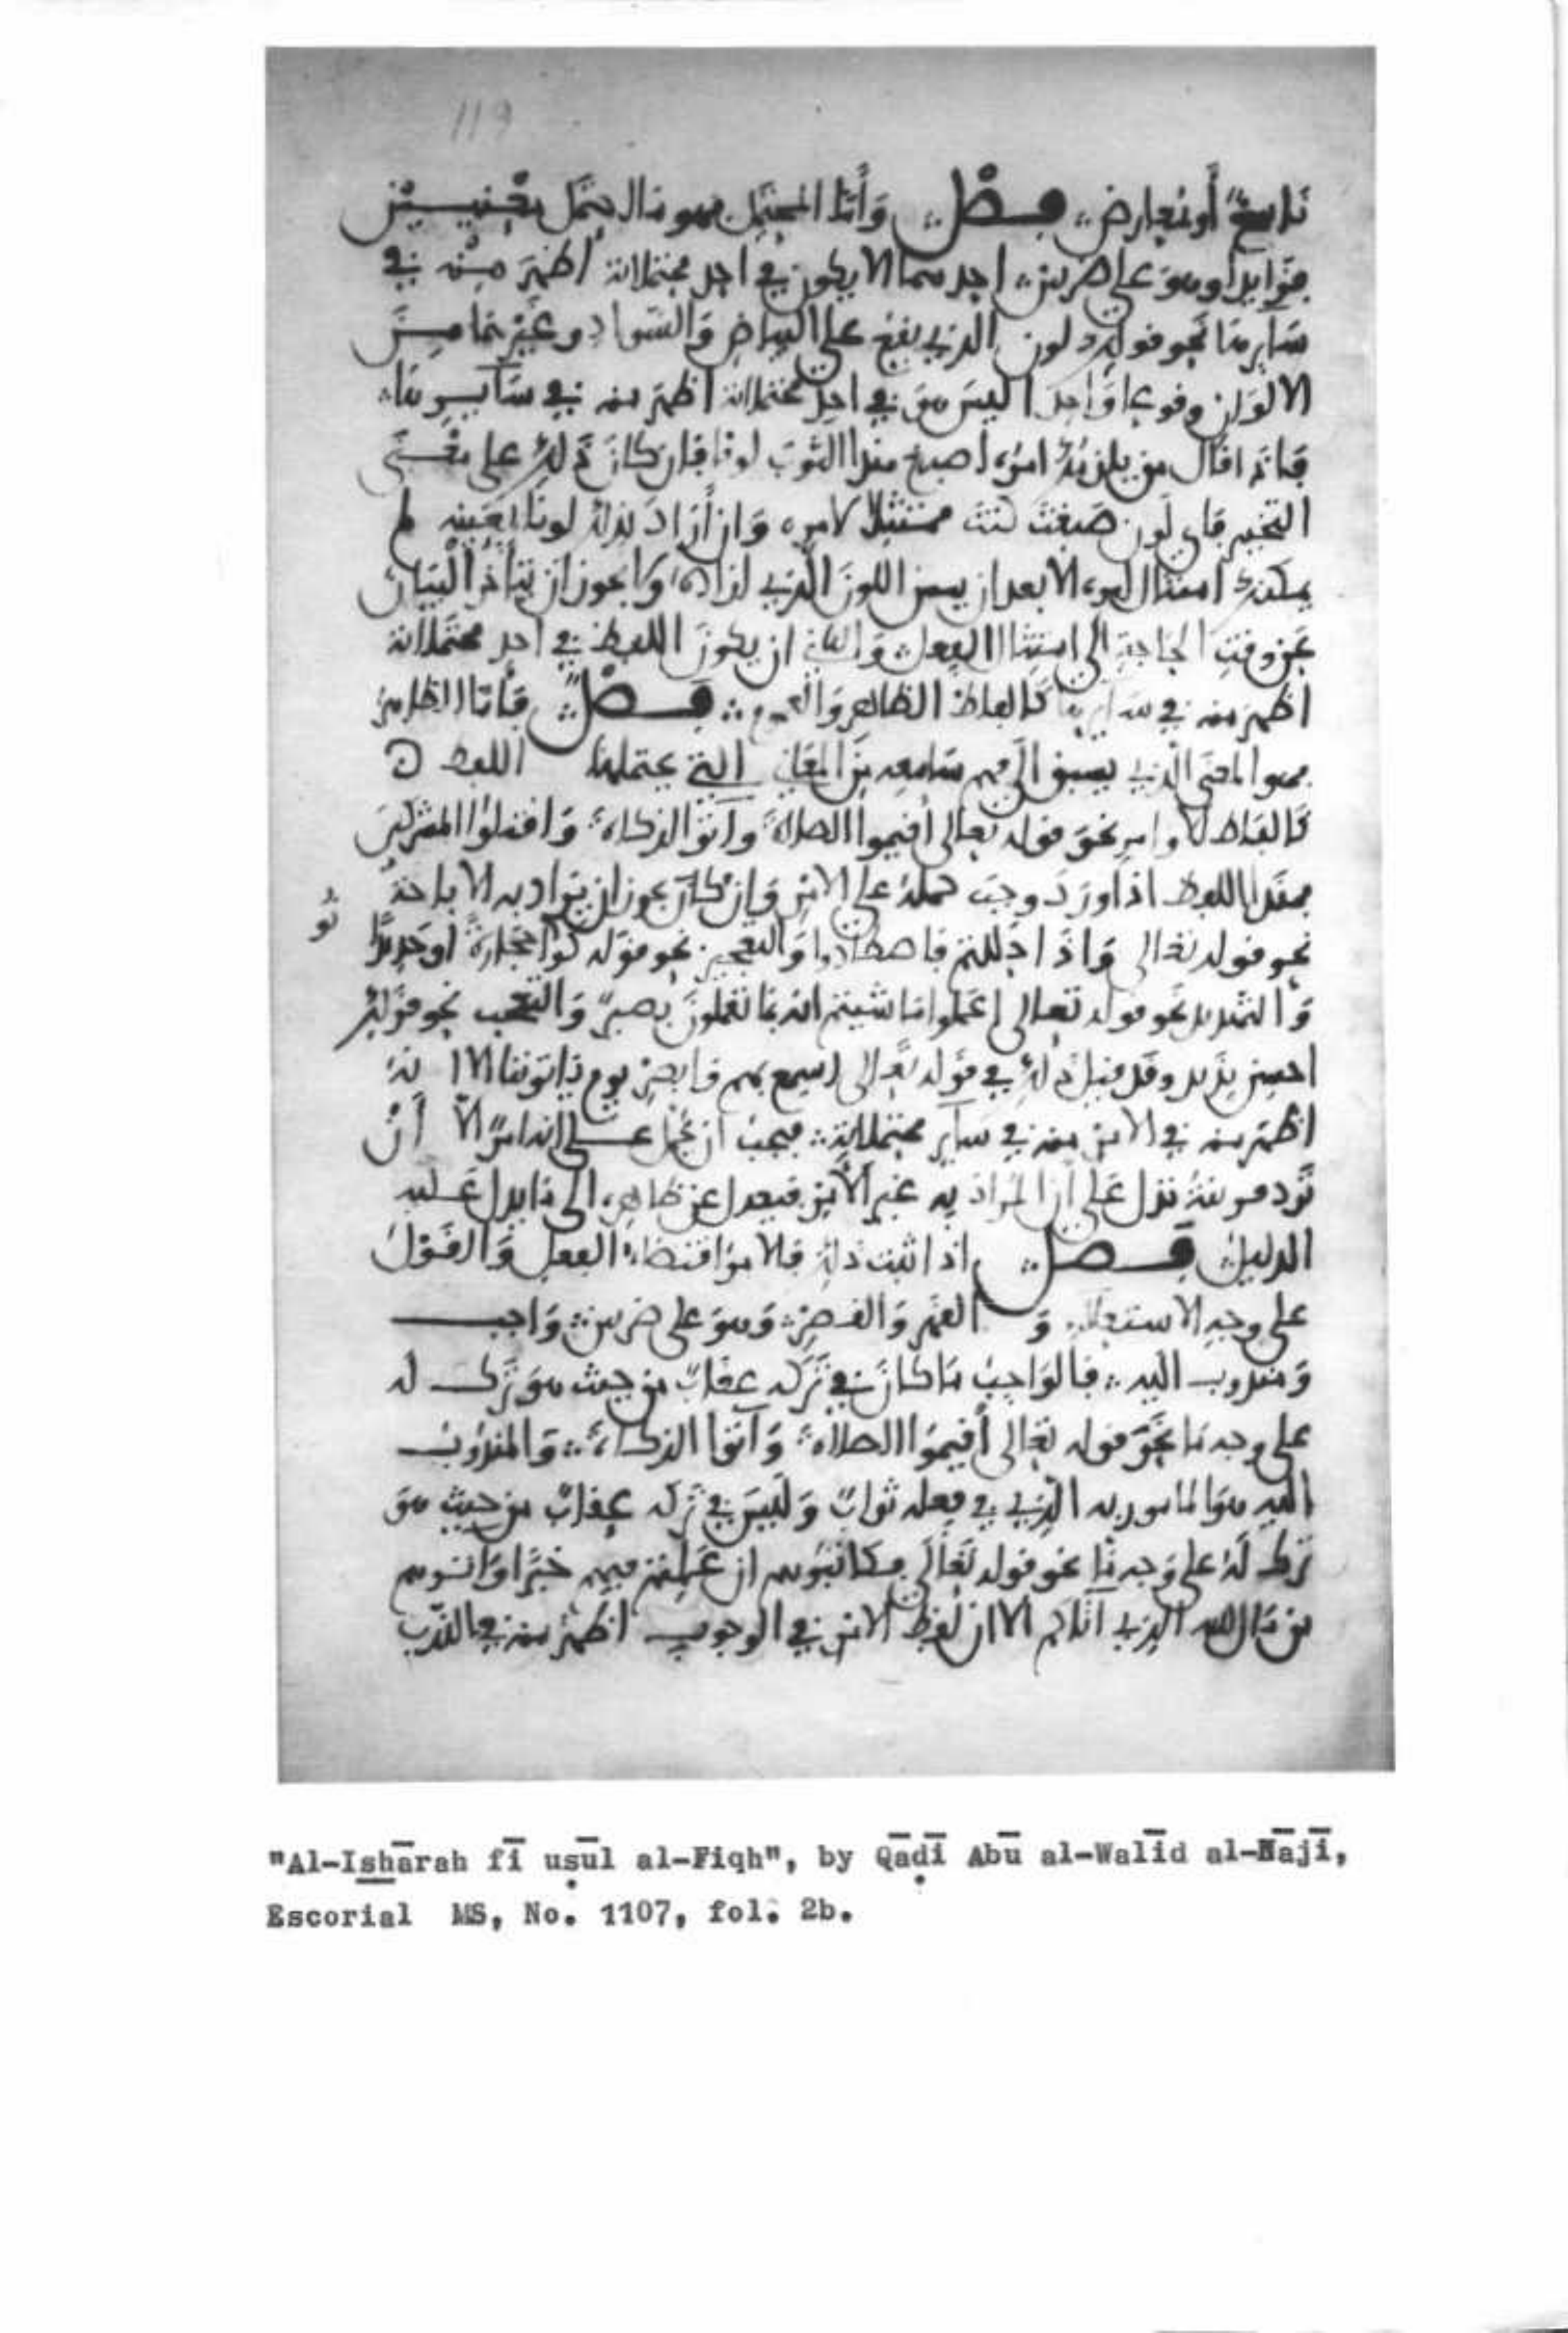 119
ناسخ أو تعارض فصل وأما المحتمل فهو ما احتمل معنيين
فزايدا وهو على ضربين احدهما الا يكون في احد محتملاته اظهر منه في
سايرها نحو قولك لون الذي يقع على البياض والسواد وغيرهما من
الالوان وقوعا واحدا ليس هو في احد محتملاته اظهر منه في سايرها
فاذا قال من يلزمك امره اصبغ هذا الثوب لونا فان كان ذلك على معنى
التخيير فاي لون صبغت كنت ممتثلا لامره وان أراد بذلك لونا بعينه لم
يمكنك امتثال امره الا بعد ان يبين اللون الذي اراده ولا يجوز ان يتأخر البيان
عن وقت الحاجة الى امتثال الفعل والثاني ان يكون اللفظ في احد محتملاته
اظهر منه في سايرها كالفاظ الظاهر والعموم فصل فأما الظاهر
فهو المعنى الذي يسبق الى فهم سامعه من المعاني التي يحتملها اللفظ
كالفاظ الاوامر نحو قوله تعالى أقيموا الصلاة وآتوا الزكاة واقتلوا المشركين
فهذا اللفظ اذا ورد وجب حمله على الامر وان كان يجوز ان يراد به الاباحة
نحو قوله تعالى واذا حللتم فاصطادوا والتعجيز نحو قوله كونوا حجارة او حديدا
والتهديد نحو قوله تعالى اعملوا ما شيتم انه بما تعملون بصير والتعجب نحو قولك
احسن بزيد وقد قيل ذلك في قوله تعالى اسمع بهم وابصر يوم ياتوننا الا انه
اظهر منه في الامر منه في ساير محتملاته فيجب ان يحمل على انه امر الا أن
ترد قرينة تدل على أن المراد به غير الأمر فيعدل عن ظاهره الى ما يدل عليه
الدليل فصل اذا ثبت ذلك فالامر اقتضاء الفعل والقول
على وجه الاستعلاء و القهر والقصر وهو على ضربين واجب
ومندوب اليه فالواجب ما كان في تركه عقاب من حيث هو ترك له
على وجه ما نحو قوله تعالى أقيموا الصلاة وآتوا الزكاة والمندوب
اليه هو المامور به الذي في فعله ثواب وليس في تركه عقاب من حيث هو
ترك له على وجه ما نحو قوله تعالى فكاتبوهم ان علمتم فيهم خيرا وآتوهم
من مال الله الذي آتاكم الا ان لفظ الامر في الوجوب اظهر منه في الندب
"Al-Ishārah fī uṣūl al-Fiqh", by Qāḍī Abū al-Walīd al-Nājī,
Escorial MS, No. 1107, fol. 2b.